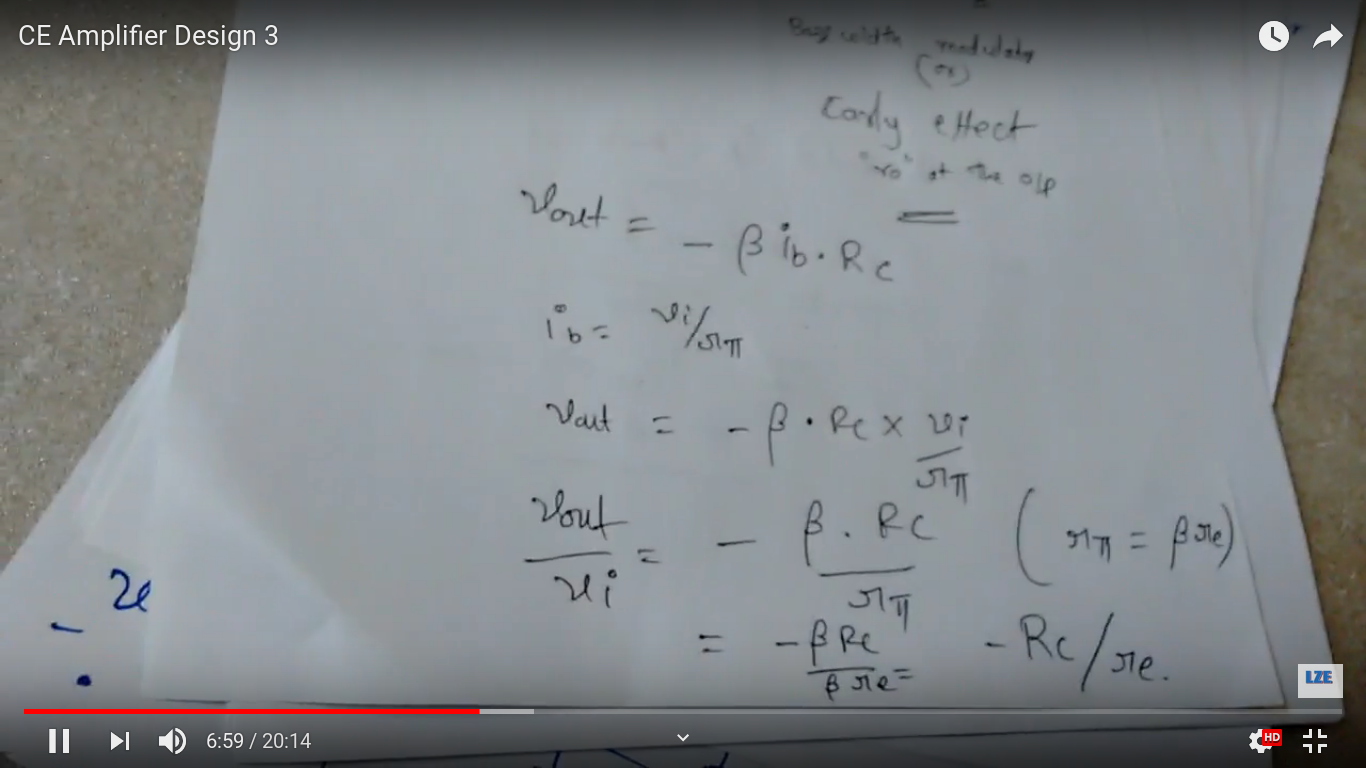 CE Amplifier Design 3
Base width modulation
(or)
Early effect
"ro" at the o/p
Vout = - β ib . Rc
ib = vi/rπ
Vout = - β . Rc x vi/rπ
Vout/vi = - β . Rc/rπ (rπ = βre)
= -βRc/βre = -Rc/re.
LZE
6:59 / 20:14
HD